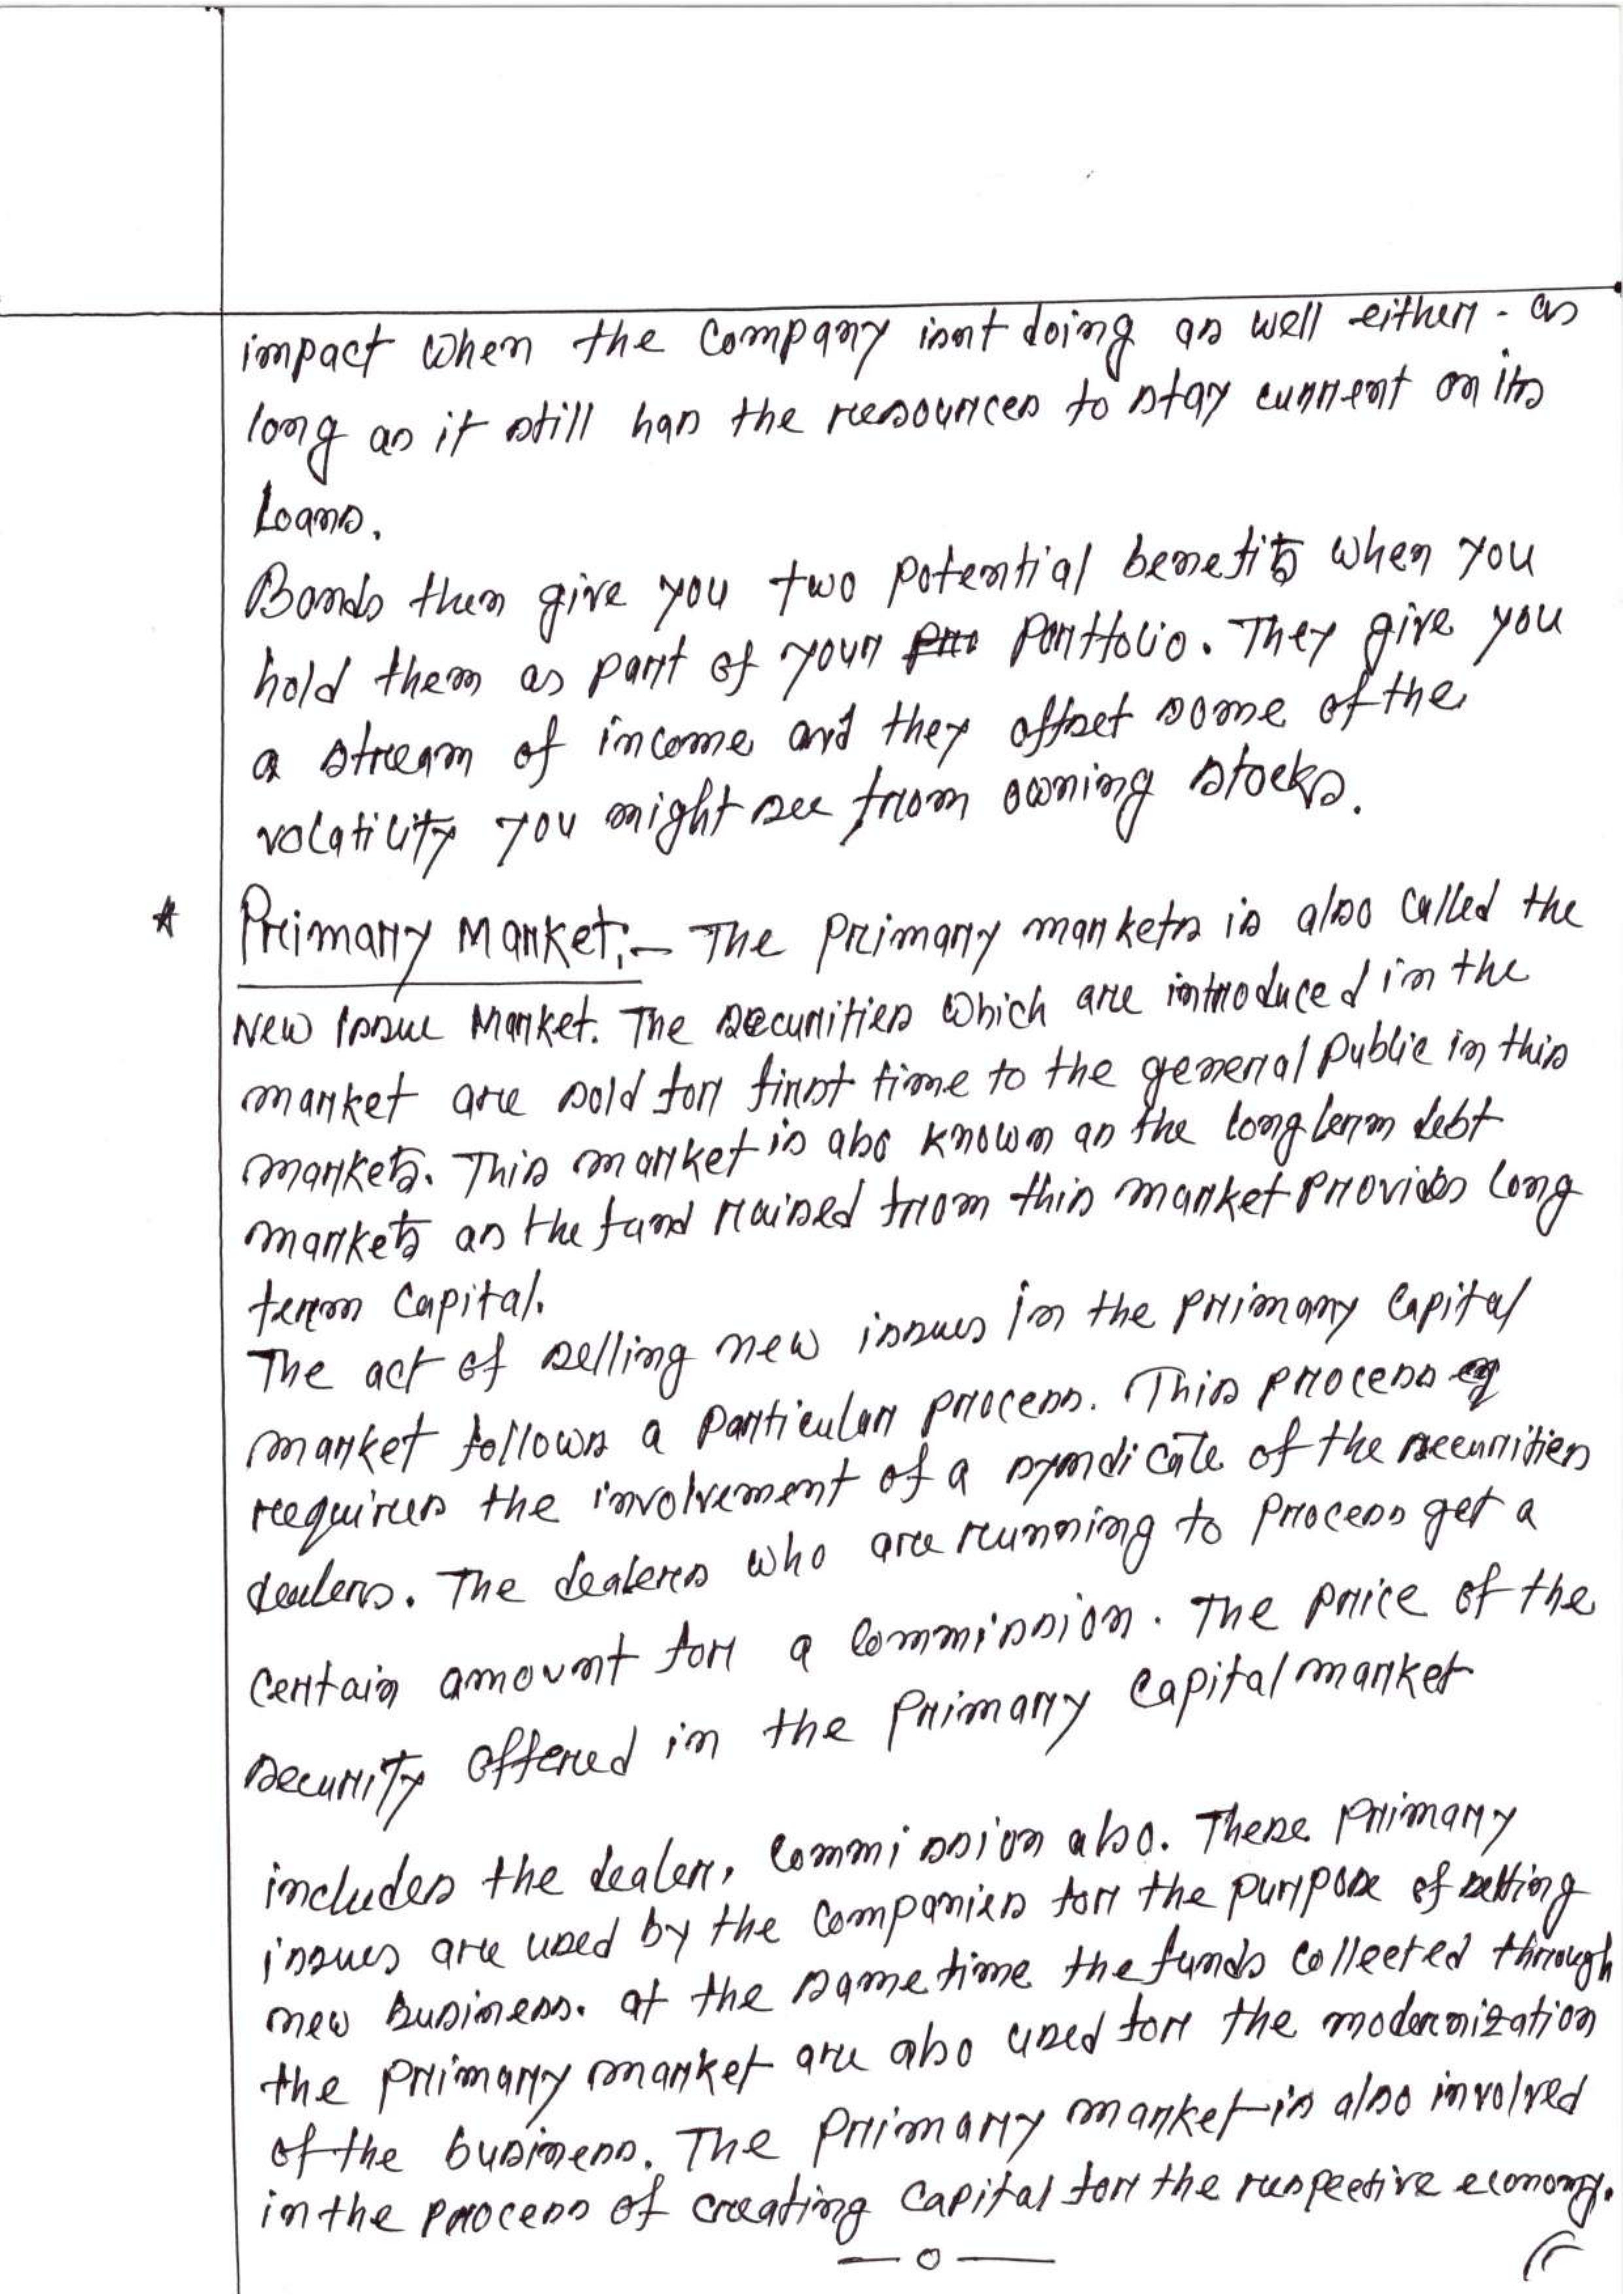 impact when the company isnt doing as well either - as
long as it still has the resources to stay current on its
Loans.
Bonds then give you two potential benefits when you
hold them as part of your Portfolio. They give you
a stream of income and they offset some of the
volatility you might see from owning stocks.
* Primary Market:- The Primary markets is also called the
New Issue Market. The securities which are introduced in the
market are sold for first time to the general Public in this
markets. This market is also known as the long term debt
markets as the fund raised from this market provides long
term Capital.
The act of selling new issues in the primary Capital
market follows a particular process. This process
requires the involvement of a syndicate of the securities
dealers. The dealers who are running to process get a
certain amount for a commission. The price of the
security offered in the Primary Capital market
includes the dealer, commission also. These primary
issues are used by the companies for the purpose of setting
new business. at the same time the funds collected through
the primary market are also used for the modernization
of the business. The Primary market is also involved
in the process of creating Capital for the respective economy.
— o —